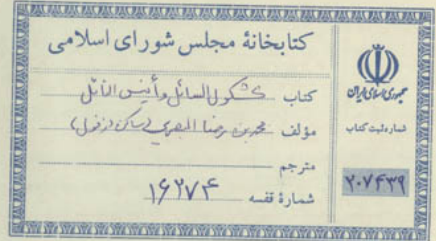 کتابخانهٔ مجلس شورای اسلامی
کتاب کشکول السائل وأنیس النائل
مؤلف محمد بن رضا البصری (ساکن دزفول)
مترجم
شمارهٔ قفسه ۱۶۲۷۴
جمهوری اسلامی ایران
شماره ثبت کتاب
۲۰۷۴۳۹